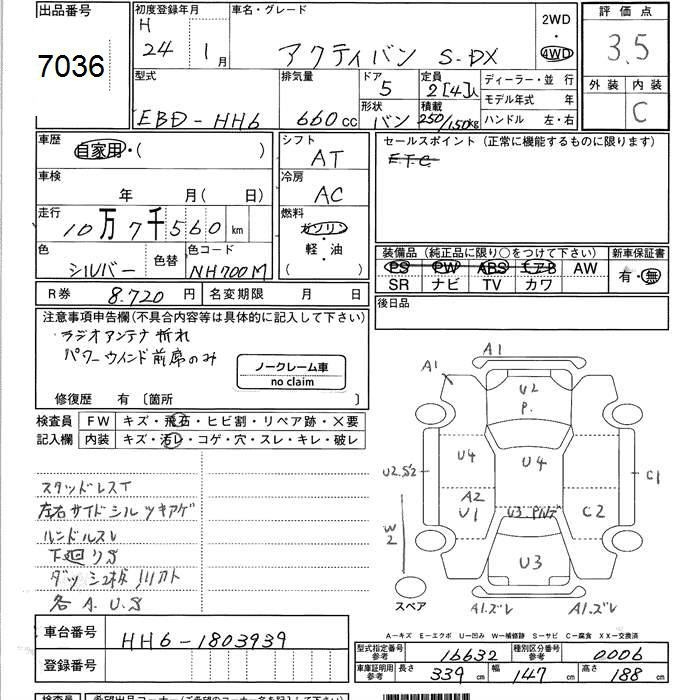 出品番号
7036
初度登録年月
H
24 1月
車名・グレード
アクティバン S-DX
2WD
・
4WD
評価点
3.5
外装 内装
C
型式
EBD-HH6
排気量
660cc
ドア
5
形状
バン
定員
2[4]人
積載
250/150kg
ディーラー・並 行
モデル年式 年
ハンドル 左・右
車歴
自家用・( )
車検
年 月(日)
走行
10万7千560km
色
シルバー
色替
色コード
NH700M
シフト
AT
冷房
AC
燃料
ガソリン
軽・油
( )
セールスポイント (正常に機能するものに限ります)
ETC
装備品 (純正品に限り○をつけて下さい)
PS PW ABS エアB AW
SR ナビ TV カワ
新車保証書
有・無
R券 8.720円
名変期限 月 日
後日品
注意事項申告欄(不具合内容等は具体的に記入して下さい)
ラジオアンテナ折れ
パワーウインド前席のみ
ノークレーム車
no claim
修復歴 有 〔箇所 〕
検査員
記入欄
FW キズ・飛石・ヒビ割・リペア跡・×要
内装 キズ・汚レ・コゲ・穴・スレ・キレ・破レ
スタッドレスT
左右サイドシルツキアゲ
ハンドルスレ
下廻りS
各A.U.S
A1
A1
U2
P.
U4
U4
U2.S2
C1
A2
U1
C2
W2
U3
スペア
A1.ズレ
A1.ズレ
A-キズ E-エクボ U-凹み W-補修跡 S-サビ C-腐食 XX-交換済
車台番号 HH6-1803939
登録番号
型式指定番号
参考
16632
種別区分番号
参考
0006
車庫証明用
参考
長さ 339cm 幅 147cm 高さ 188cm